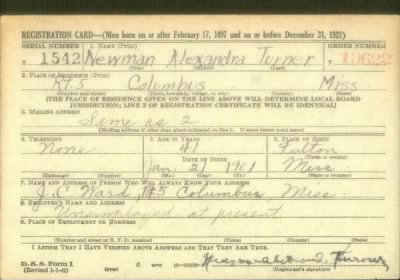 REGISTRATION CARD—(Men born on or after February 17, 1897 and on or before December 31, 1921)
SERIAL NUMBER 1. NAME (Print) ORDER NUMBER
T 1542 Newman Alexandra Turner 10622
(First) (Middle) (Last)
2. PLACE OF RESIDENCE (Print)
Rt. 5 Columbus Miss
(Number and street) (Town, township, village, or city) (County) (State)
[THE PLACE OF RESIDENCE GIVEN ON THE LINE ABOVE WILL DETERMINE LOCAL BOARD
JURISDICTION; LINE 2 OF REGISTRATION CERTIFICATE WILL BE IDENTICAL]
3. MAILING ADDRESS
Same as 2
[Mailing address if other than place indicated on line 2. If same insert word same]
4. TELEPHONE 5. AGE IN YEARS 6. PLACE OF BIRTH
None 41 Fulton
DATE OF BIRTH
Jan. 21 1901 Miss
(Exchange) (Number) (Mo.) (Day) (Yr.) (State or country)
7. NAME AND ADDRESS OF PERSON WHO WILL ALWAYS KNOW YOUR ADDRESS
Ward, #5 Columbus, Miss
8. EMPLOYER'S NAME AND ADDRESS
Unemployed at present
9. PLACE OF EMPLOYMENT OR BUSINESS
(Number and street or R. F. D. number) (Town) (County) (State)
I AFFIRM THAT I HAVE VERIFIED ABOVE ANSWERS AND THAT THEY ARE TRUE.
D. S. S. Form 1
(Revised 1-1-42) (over) GPO Turner
(Registrant's signature)